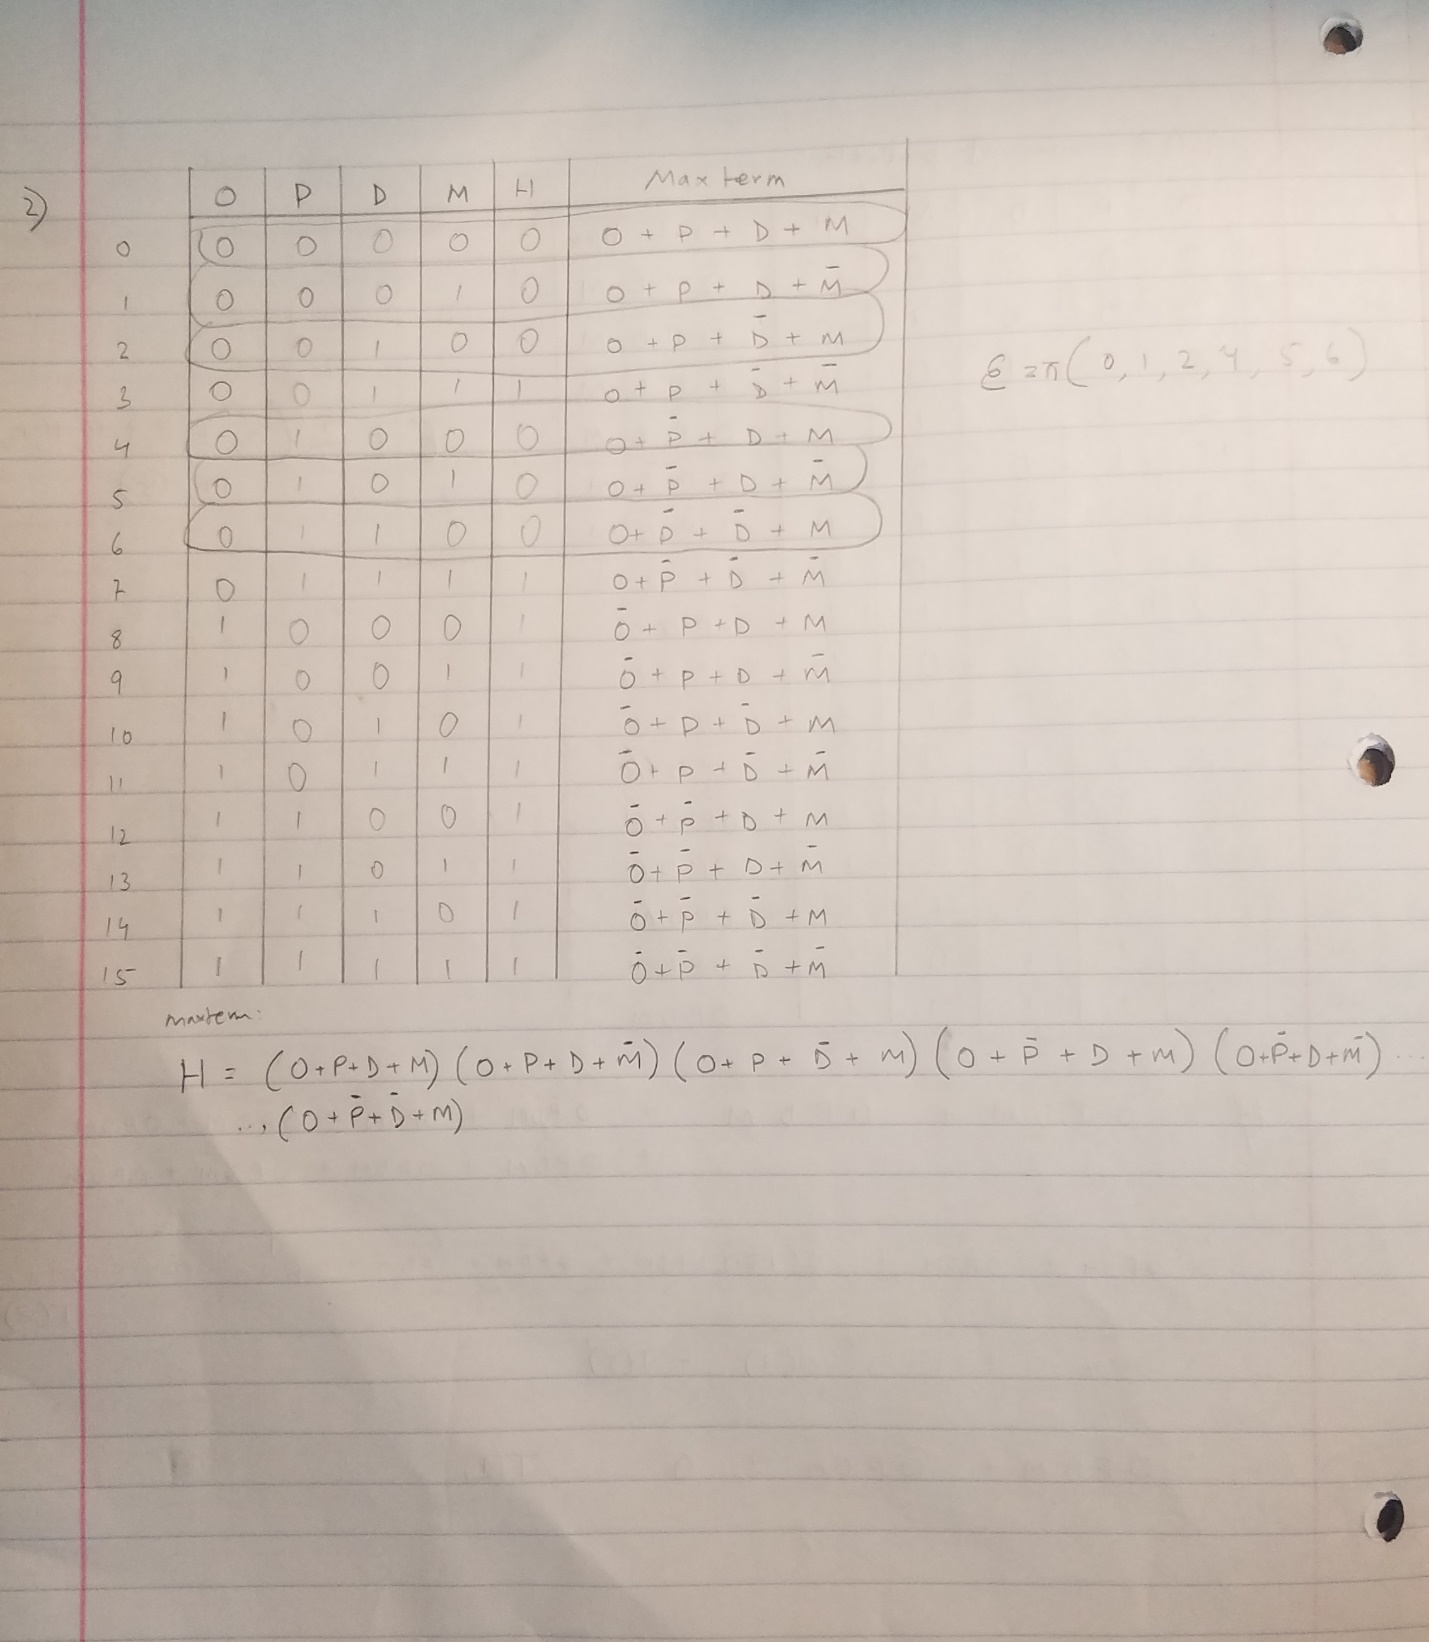 2)
O P D M H Max term
0 0 0 0 0 0 O + P + D + M
1 0 0 0 1 0 O + P + D + M̄
2 0 0 1 0 0 O + P + D̄ + M
3 0 0 1 1 1 O + P + D̄ + M̄
4 0 1 0 0 0 O + P̄ + D + M
5 0 1 0 1 0 O + P̄ + D + M̄
6 0 1 1 0 0 O + P̄ + D̄ + M
7 0 1 1 1 1 O + P̄ + D̄ + M̄
8 1 0 0 0 1 Ō + P + D + M
9 1 0 0 1 1 Ō + P + D + M̄
10 1 0 1 0 1 Ō + P + D̄ + M
11 1 0 1 1 1 Ō + P + D̄ + M̄
12 1 1 0 0 1 Ō + P̄ + D + M
13 1 1 0 1 1 Ō + P̄ + D + M̄
14 1 1 1 0 1 Ō + P̄ + D̄ + M
15 1 1 1 1 1 Ō + P̄ + D̄ + M̄
= π( 0, 1, 2, 4, 5, 6)
maxtem:
H = (O+P+D+M) (O+P+D+M̄) (O+P+D̄+M) (O+P̄+D+M) (O+P̄+D+M̄) ...
..., (O+P̄+D̄+M)